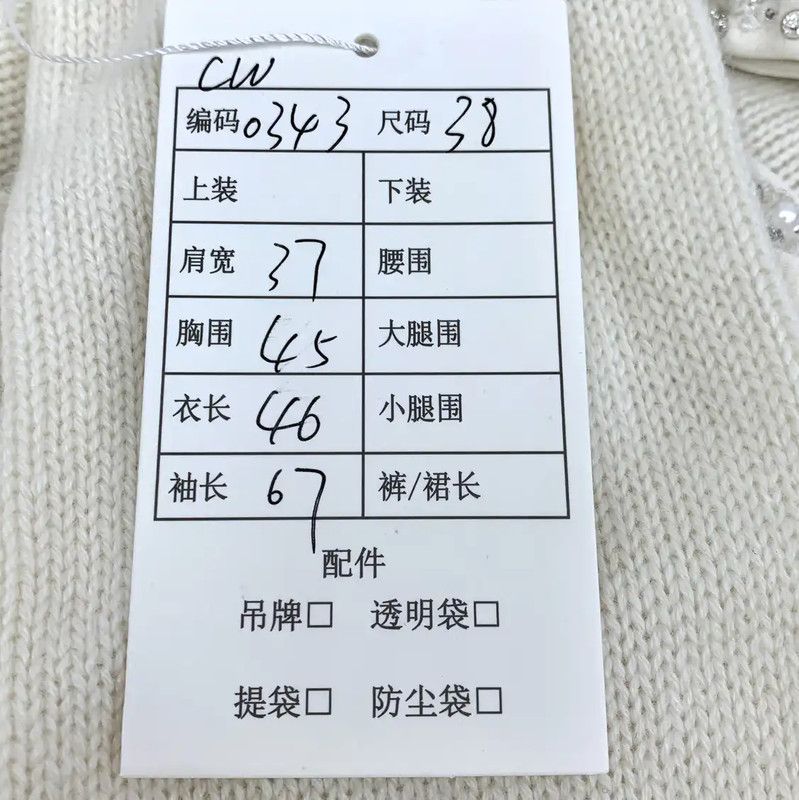 CW
编码0343 尺码38
上装 下装
肩宽 37 腰围
胸围 45 大腿围
衣长 46 小腿围
袖长 67 裤/裙长
配件
吊牌□ 透明袋□
提袋□ 防尘袋□